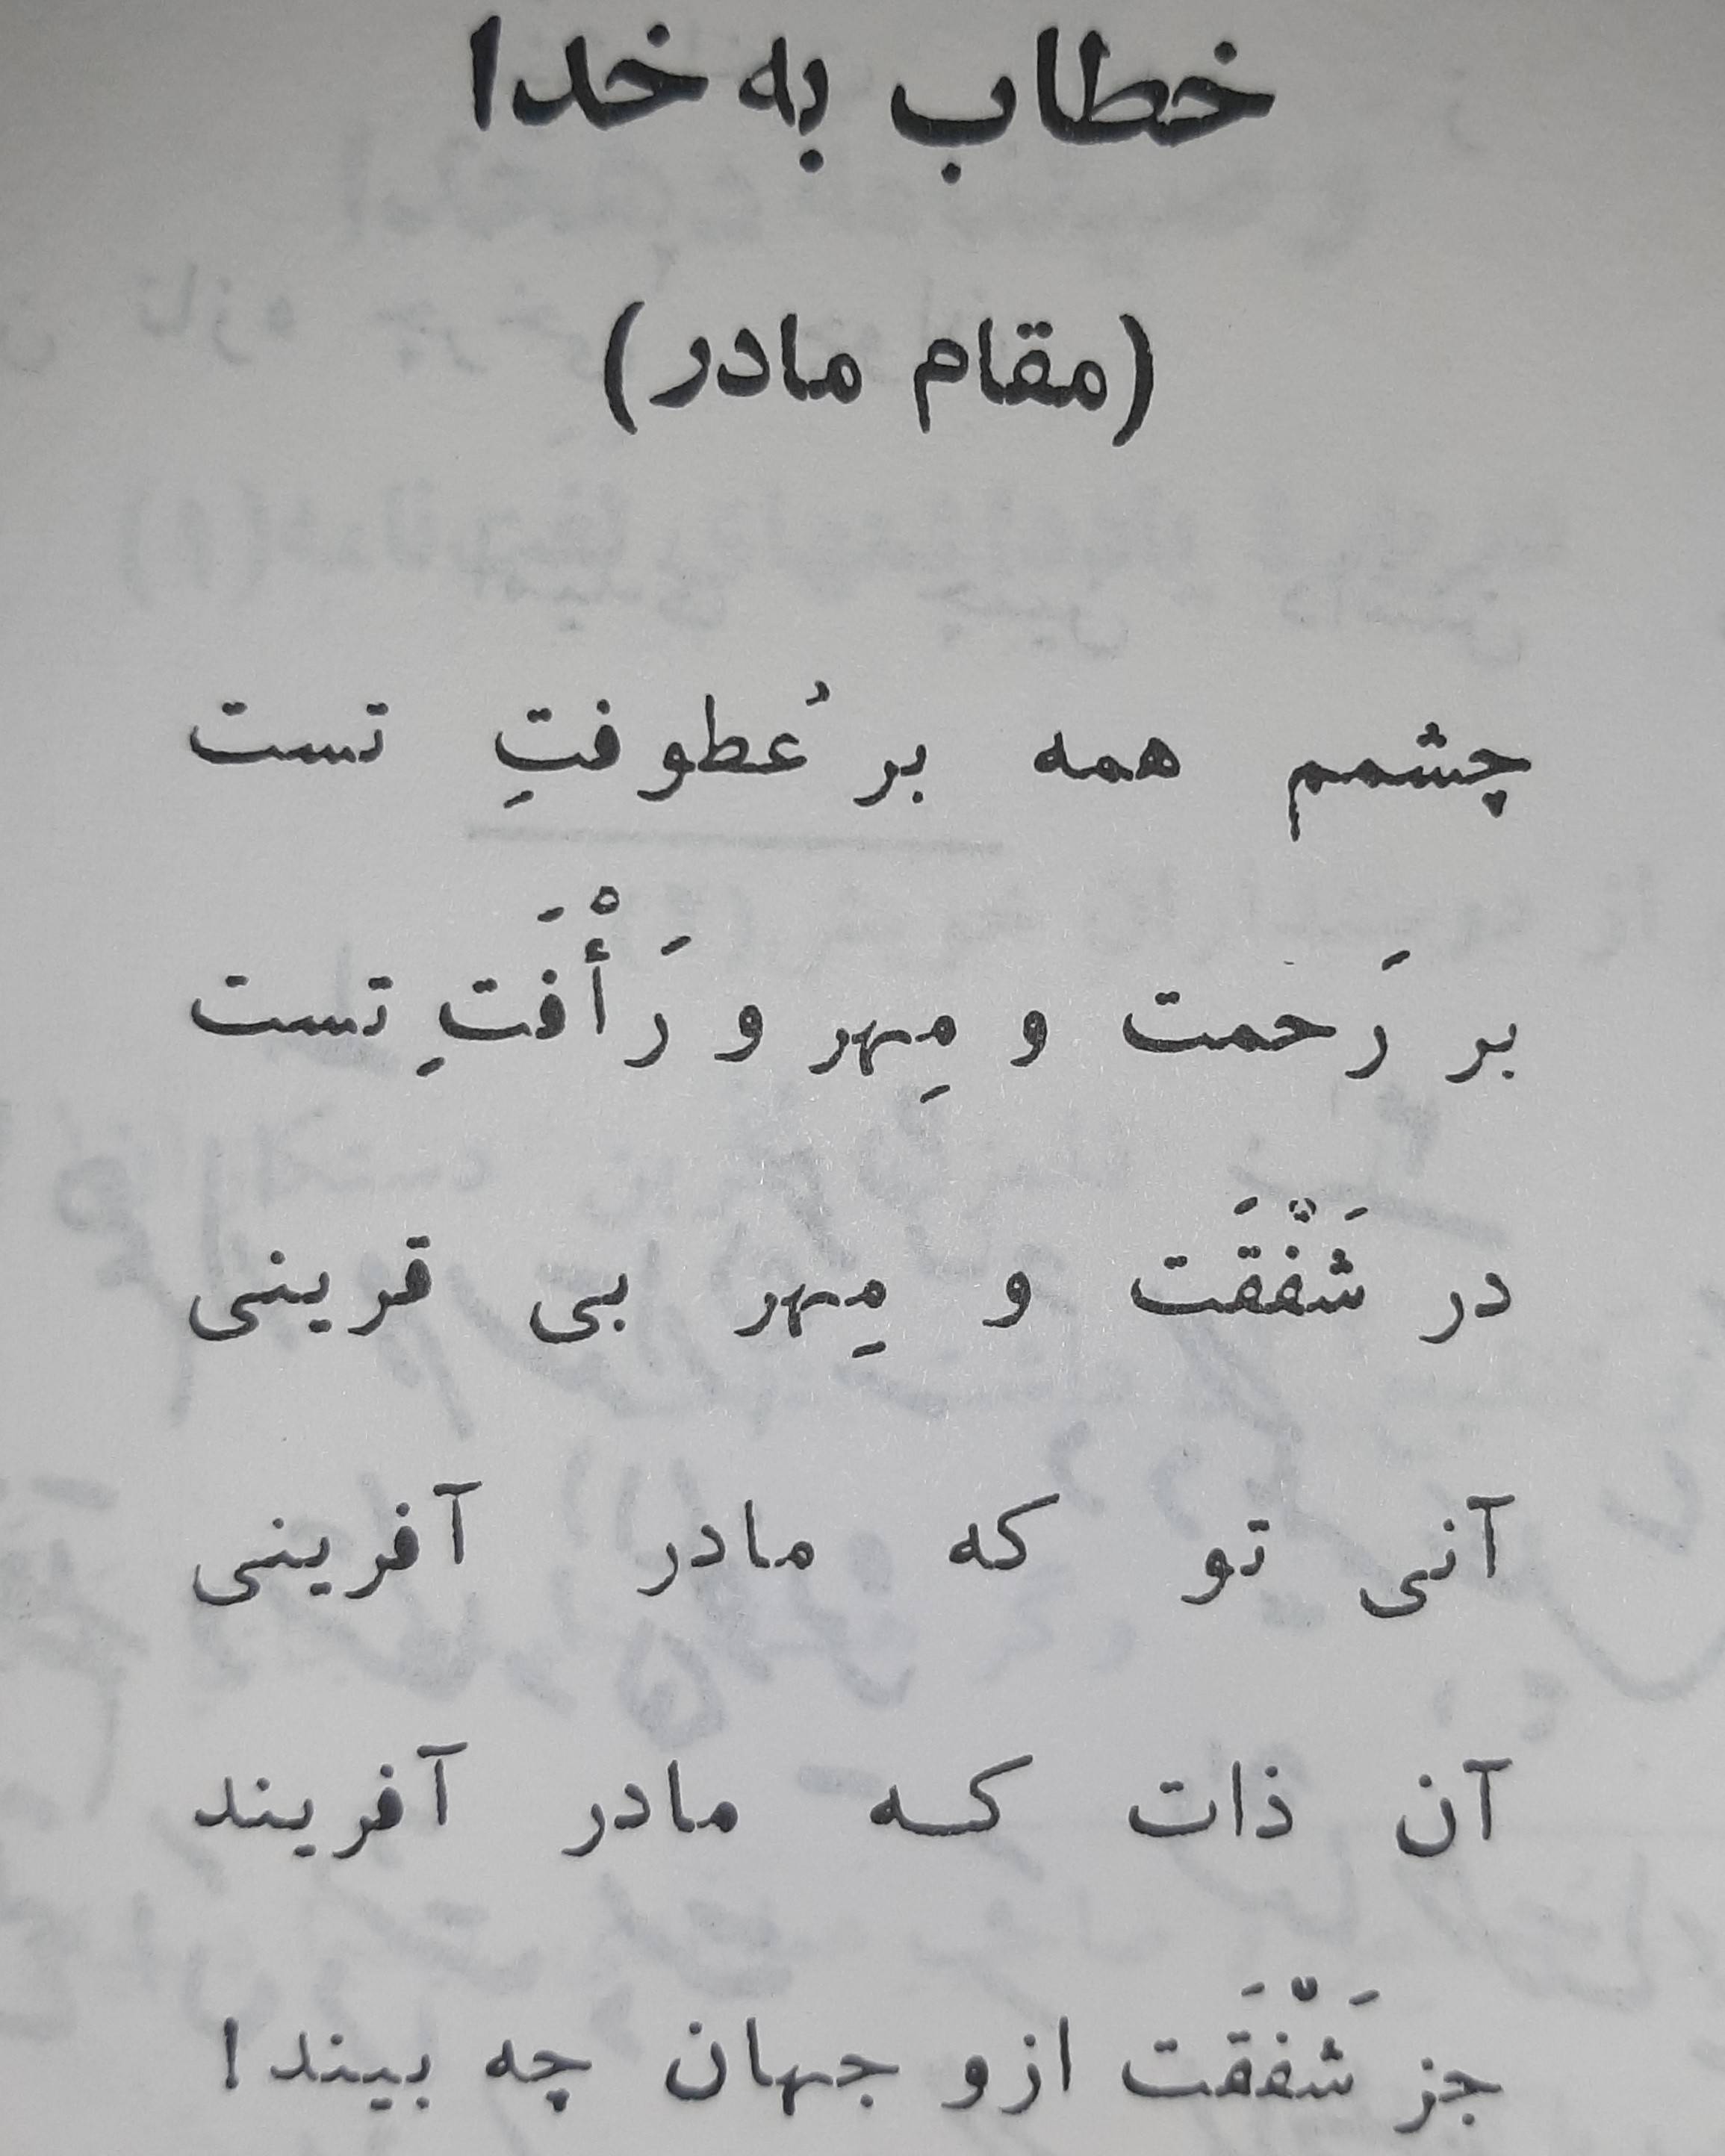 خطاب به خدا
(مقام مادر)
چشمم همه بر عُطوفتِ تست
بر رَحمت و مِهر و رَأْفَتِ تست
در شَفْقَت و مِهر بی قرینی
آنی تو که مادر آفرینی
آن ذات که مادر آفریند
جز شَفْقَت ازو جهان چه بیند!